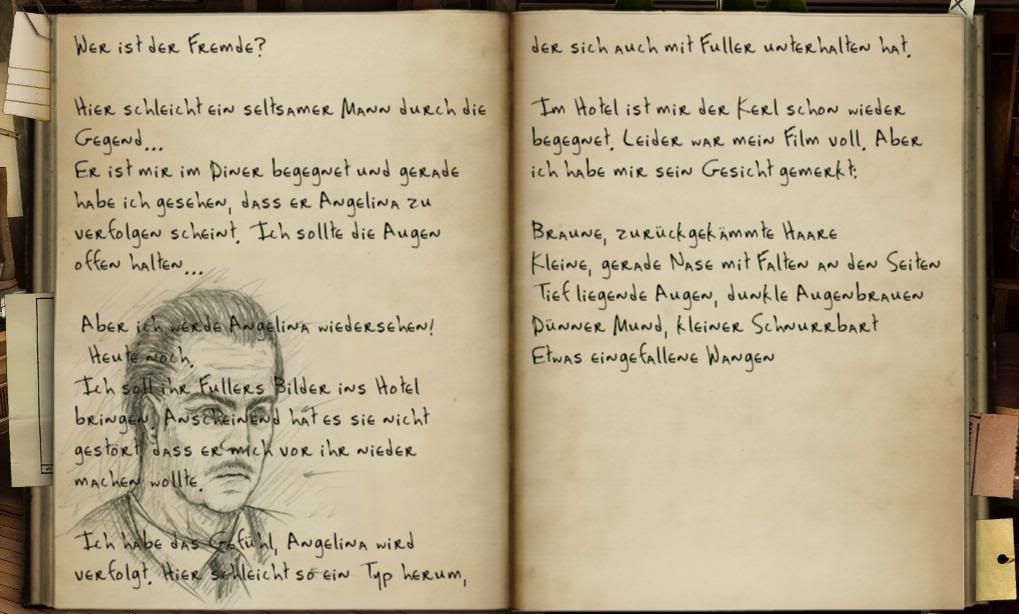 Wer ist der Fremde?
Hier schleicht ein seltsamer Mann durch die
Gegend...
Er ist mir im Diner begegnet und gerade
habe ich gesehen, dass er Angelina zu
verfolgen scheint. Ich sollte die Augen
offen halten...
Aber ich werde Angelina wiedersehen!
Heute noch.
Ich soll ihr Fullers Bilder ins Hotel
bringen. Anscheinend hat es sie nicht
gestört dass er mich vor ihr nieder
machen wollte.
Ich habe das Gefühl, Angelina wird
verfolgt. Hier schleicht so ein Typ herum,
der sich auch mit Fuller unterhalten hat.
Im Hotel ist mir der Kerl schon wieder
begegnet. Leider war mein Film voll. Aber
ich habe mir sein Gesicht gemerkt:
Braune, zurückgekämmte Haare
Kleine, gerade Nase mit Falten an den Seiten
Tief liegende Augen, dunkle Augenbrauen
Dünner Mund, kleiner Schnurrbart
Etwas eingefallene Wangen